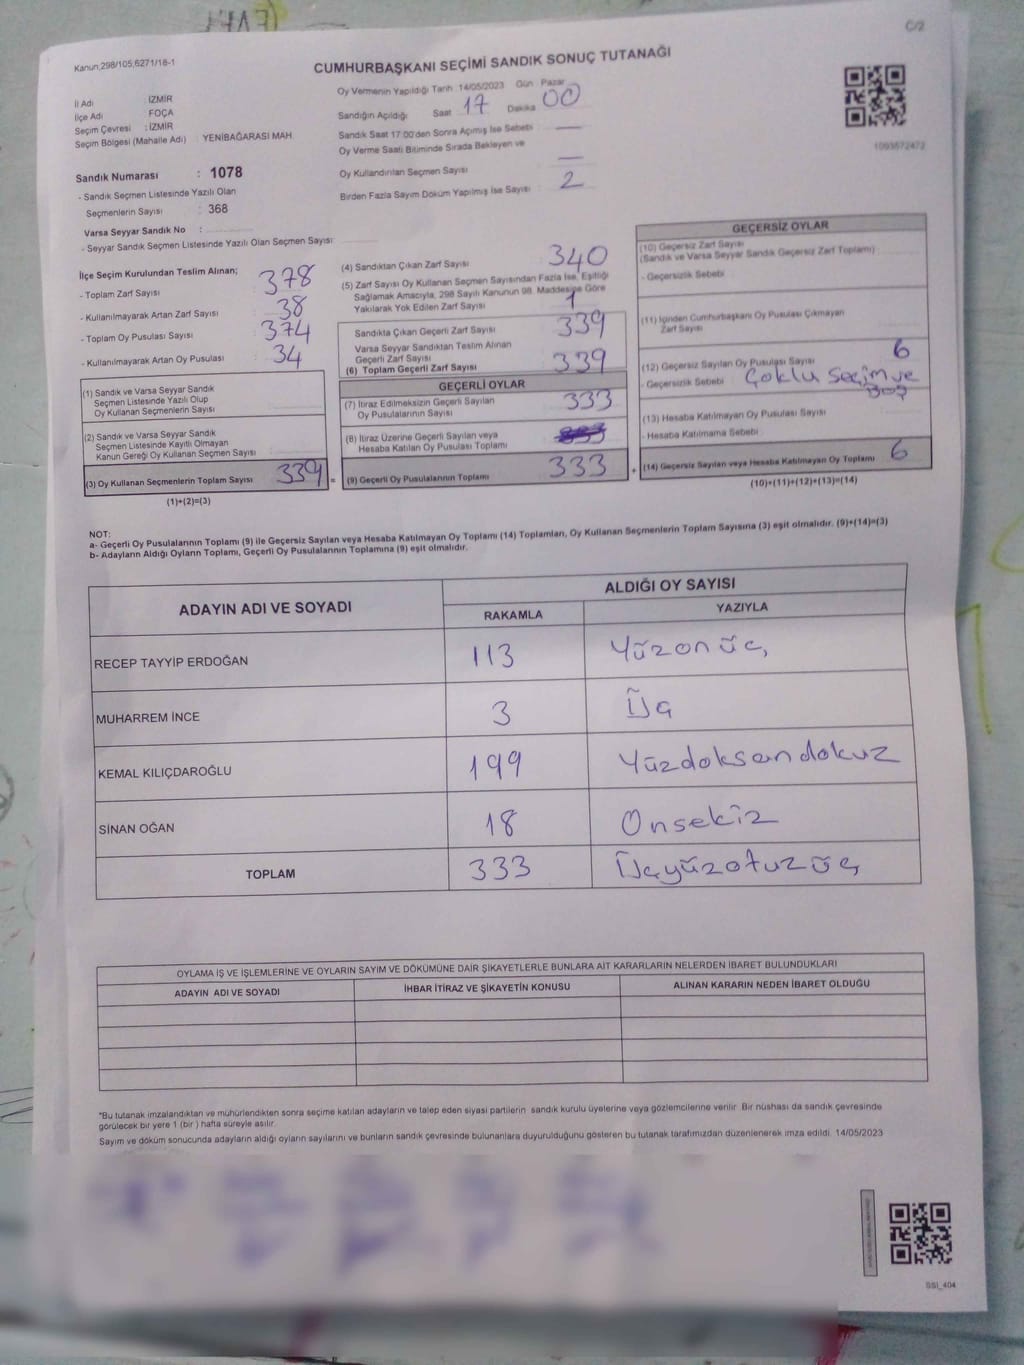 C/2
Kanun,298/105,6271/18-1
CUMHURBAŞKANI SEÇİMİ SANDIK SONUÇ TUTANAĞI
İl Adı : İZMİR
İlçe Adı : FOÇA
Seçim Çevresi : İZMİR
Seçim Bölgesi (Mahalle Adı) : YENİBAĞARASI MAH.
Sandık Numarası : 1078
- Sandık Seçmen Listesinde Yazılı Olan
Seçmenlerin Sayısı : 368
Varsa Seyyar Sandık No :
- Seyyar Sandık Seçmen Listesinde Yazılı Olan Seçmen Sayısı
Oy Vermenin Yapıldığı Tarih 14/05/2023 Gün Pazar
Sandığın Açıldığı Saat 17 Dakika 00
Sandık Saat 17:00'den Sonra Açmış İse Sebebi —
Oy Verme Saati Bitiminde Sırada Bekleyen ve
Oy Kullandırılan Seçmen Sayısı —
Birden Fazla Sayım Döküm Yapılmış İse Sayısı 2
1093672472
İlçe Seçim Kurulundan Teslim Alınan;
- Toplam Zarf Sayısı : 378
- Kullanılmayarak Artan Zarf Sayısı : 38
- Toplam Oy Pusulası Sayısı : 374
- Kullanılmayarak Artan Oy Pusulası : 34
(1) Sandık ve Varsa Seyyar Sandık
Seçmen Listesinde Yazılı Olup
Oy Kullanan Seçmenlerin Sayısı
(2) Sandık ve Varsa Seyyar Sandık
Seçmen Listesinde Kayıtlı Olmayan
Kanun Gereği Oy Kullanan Seçmen Sayısı
(3) Oy Kullanan Seçmenlerin Toplam Sayısı 339 =
(1)+(2)=(3)
(4) Sandıktan Çıkan Zarf Sayısı 340
(5) Zarf Sayısı Oy Kullanan Seçmen Sayısından Fazla İse, Eşitliği
Sağlamak Amacıyla, 298 Sayılı Kanunun 98. Maddesine Göre
Yakılarak Yok Edilen Zarf Sayısı 1
Sandıkta Çıkan Geçerli Zarf Sayısı 339
Varsa Seyyar Sandıktan Teslim Alınan
Geçerli Zarf Sayısı
(6) Toplam Geçerli Zarf Sayısı 339
GEÇERLİ OYLAR
(7) İtiraz Edilmeksizin Geçerli Sayılan
Oy Pusulalarının Sayısı 333
(8) İtiraz Üzerine Geçerli Sayılan veya
Hesaba Katılan Oy Pusulası Toplamı
(9) Geçerli Oy Pusulalarının Toplamı 333 +
GEÇERSİZ OYLAR
(10) Geçersiz Zarf Sayısı
(Sandık ve Varsa Seyyar Sandık Geçersiz Zarf Toplamı)
- Geçersizlik Sebebi
(11) İçinden Cumhurbaşkanı Oy Pusulası Çıkmayan
Zarf Sayısı
(12) Geçersiz Sayılan Oy Pusulası Sayısı 6
- Geçersizlik Sebebi Çoklu Seçim ve
Boş
(13) Hesaba Katılmayan Oy Pusulası Sayısı
- Hesaba Katılmama Sebebi
(14) Geçersiz Sayılan veya Hesaba Katılmayan Oy Toplamı 6
(10)+(11)+(12)+(13)=(14)
NOT:
a- Geçerli Oy Pusulalarının Toplamı (9) ile Geçersiz Sayılan veya Hesaba Katılmayan Oy Toplamı (14) Toplamları, Oy Kullanan Seçmenlerin Toplam Sayısına (3) eşit olmalıdır. (9)+(14)=(3)
b- Adayların Aldığı Oyların Toplamı, Geçerli Oy Pusulalarının Toplamına (9) eşit olmalıdır.
ADAYIN ADI VE SOYADI ALDIĞI OY SAYISI
RAKAMLA YAZIYLA
RECEP TAYYİP ERDOĞAN 113 Yüzonüç
MUHARREM İNCE 3 Üç
KEMAL KILIÇDAROĞLU 199 Yüzdoksandokuz
SİNAN OĞAN 18 Onsekiz
TOPLAM 333 Üçyüzotuzüç
OYLAMA İŞ VE İŞLEMLERİNE VE OYLARIN SAYIM VE DÖKÜMÜNE DAİR ŞİKAYETLERLE BUNLARA AİT KARARLARIN NELERDEN İBARET BULUNDUKLARI
ADAYIN ADI VE SOYADI İHBAR İTİRAZ VE ŞİKAYETİN KONUSU ALINAN KARARIN NEDEN İBARET OLDUĞU
*Bu tutanak imzalandıktan ve mühürlendikten sonra seçime katılan adayların ve talep eden siyasi partilerin sandık kurulu üyelerine veya gözlemcilerine verilir. Bir nüshası da sandık çevresinde
görülecek bir yere 1 (bir) hafta süreyle asılır.
Sayım ve döküm sonucunda adayların aldığı oyların sayılarını ve bunların sandık çevresinde bulunanlara duyurulduğunu gösteren bu tutanak tarafımızdan düzenlenerek imza edildi. 14/05/2023
SSI_404